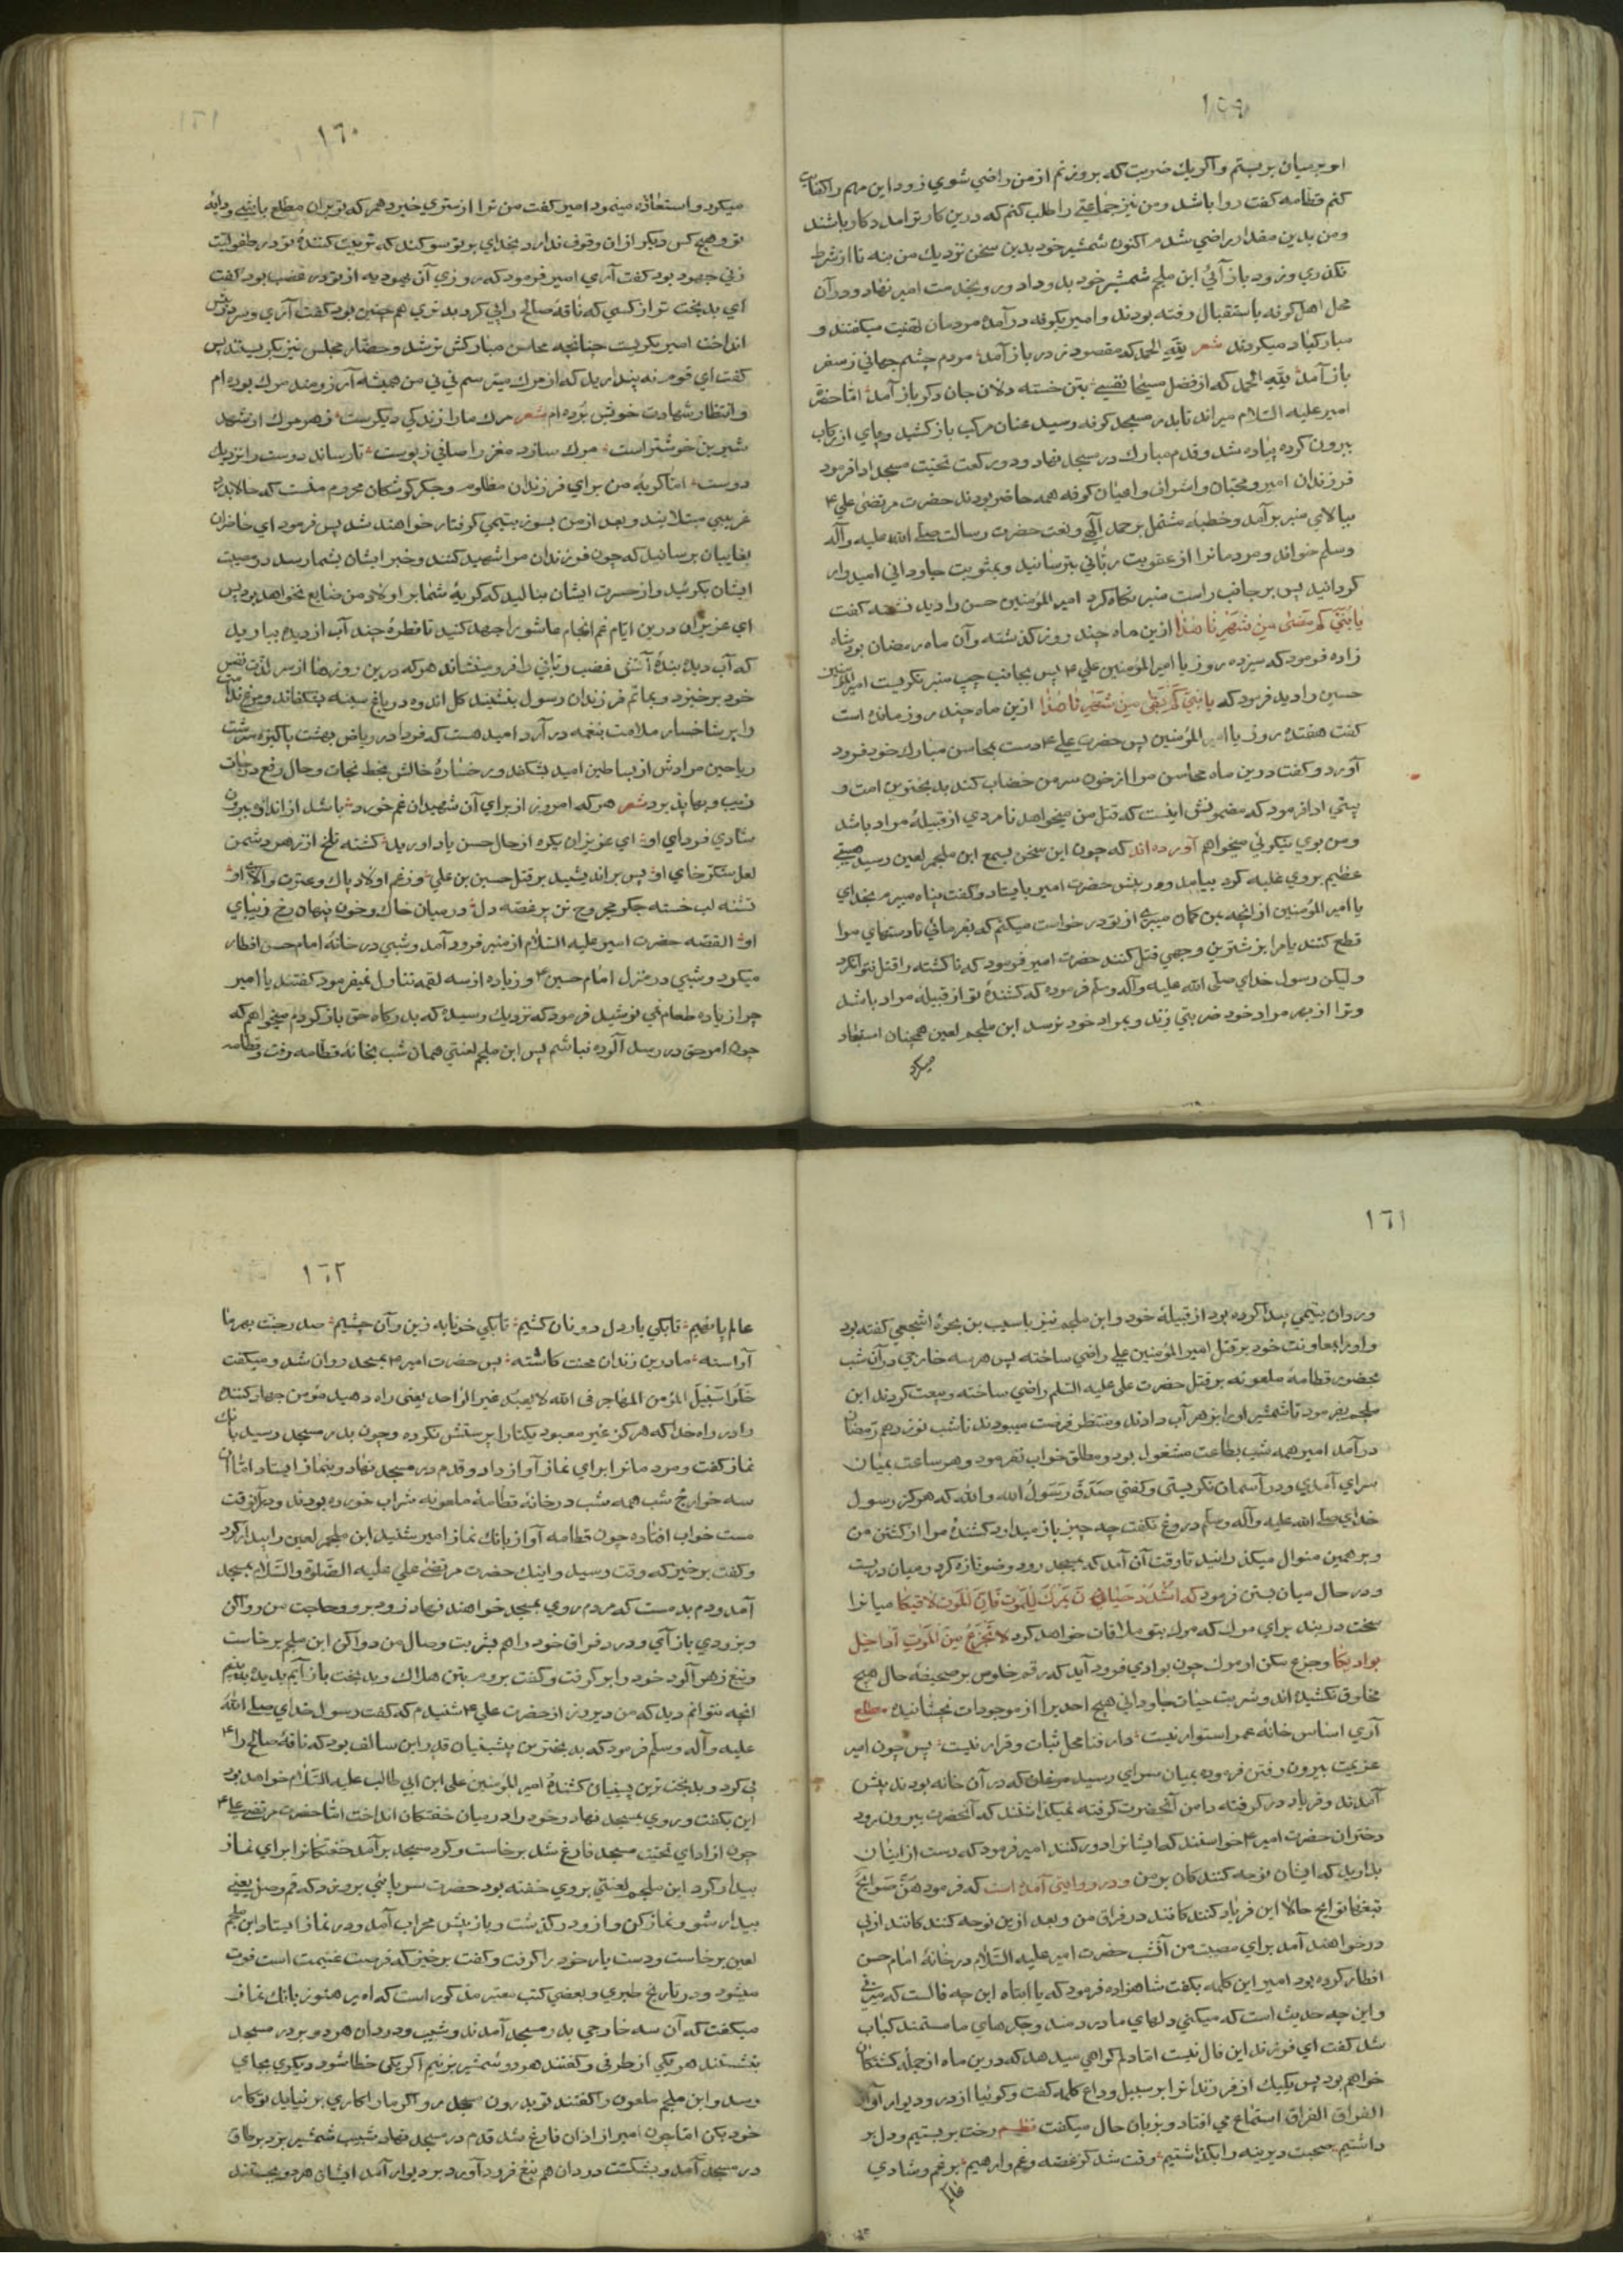 ١٥٩
او بر میان بر بستم و اگر یك ضربت که بر وزنم از من راضي شوي زود این مهم را کفایت
کنم قطامه گفت روا باشد و من نیز جماعتي را طلب کنم که درین کار ترا مدد کار باشند
و من بدین مقدار راضي شدم اکنون شمشیر خود بدین سخن نزدیك من بنه تا از شرط
نگذري و زود باز آئي ابن ملجم شمشیر خود بدو داد و رو بخدمت امیر نهاد و در آن
محل اهل کوفه باستقبال رفته بودند و امیر بکوفه در آمده مردمان تهنیت میگفتند و
مبارکباد میکردند شعر لله الحمد که مقصود ز در باز آمد مردم چشم جهاني ز سفر
باز آمد لله الحمد که از فضل مسیحا نفسي بتن خسته دلان جان دگر باز آمد اما حضرة
امیر علیه السلام میراند تا بدر مسجد کوفه رسید عنان مرکب باز کشید و پاي از رکاب
بیرون کرده پیاده شد و قدم مبارك در مسجد نهاد و دو رکعت تحیت مسجد ادا فرمود
فرزندان امیر و محبان و اشراف و اعیان کوفه همه حاضر بودند حضرت مرتضی علي ٤
ببالاي منبر بر آمد و خطبه مشتمل بر حمد الهي و نعت حضرت رسالت صلی الله علیه وآله
وسلم خواند و مردمانرا از عقوبت رباني بترسانید و بمثوبت جاوداني امیدوار
گردانید پس بر جانب راست منبر نگاه کرد امیر المؤمنین حسن را دید نشسته گفت
یا بني کم مضی من شهرنا هذا ازین ماه چند روز گذشته و آن ماه رمضان بود شاه
زاده فرمود که سیزده روز یا امیر المؤمنین علي ٤ پس بجانب چپ منبر نگریست امیر المؤمنین
حسین را دید فرمود که یا بني کم بقی من شهرنا هذا ازین ماه چند روز مانده است
گفت هفده روز یا امیر المؤمنین پس حضرت علي ٤ دست بمحاسن مبارك خود فرود
آورد و گفت درین ماه محاسن مرا از خون سر من خضاب کند بدبخترین امت و
بیتي ادا فرمود که مضمونش اینست که قتل من میخواهد نامردي از قبیلۀ مراد باشد
و من بوي نیکوئي میخواهم آورده اند که چون این سخن بسمع ابن ملجم لعین رسید هیبتي
عظیم بر وي غلبه کرد بیامد و در پیش حضرت امیر بایستاد و گفت پناه میبرم بخداي
یا امیر المؤمنین از آنچه بمن گمان میبري از تو درخواست میکنم که بفرمائي تا دستهاي مرا
قطع کنند یا مرا بزشترین وجهي قتل کنند حضرت امیر فرمود که ناکشته را قتل نتوان کرد
ولیکن رسول خداي صلی الله علیه وآله وسلم فرموده که کشندۀ تو از قبیلۀ مراد باشد
و ترا از بهر مراد خود ضربتي زند و بمراد خود نرسد ابن ملجم لعین همچنان استبعاد
میکرد
١٦٠
میکرد و استعاذه مینمود امیر گفت من ترا از ستري خبر دهم که تو بران مطلع باشي و دایۀ
تو و هیچ کس دیگر از ان وقوف ندارد بخداي بر تو سوگند که تربیت کنندۀ تو در طفولیت
زني جهود بود گفت آري امیر فرمود که روزي آن یهودیه از تو در غضب بود گفت
اي بدبخت تر از کسي که ناقۀ صالح را پي کرد بد تري هم چنین بود گفت آري و سر در پیش
انداخت امیر بگریست چنانچه محاسن مبارکش تر شد و حضار مجلس نیز بگریستند پس
گفت اي قوم نه پندارید که از مرك میترسم ني ني من همیشه آرزومند مرك بوده ام
و انتظار شهادت خویش برده ام شعر مرك ما را زندگي دیگرست زهر مرك از شهد
شیرین خوشتر است مرك سازد مغز را صافي ز پوست تا رساند دوست را نزدیك
دوست اما گریۀ من براي فرزندان مظلوم و جگر گوشگان محروم منست که حالا بدرد
غریبي مبتلایند و بعد از من بسوز یتیمي گرفتار خواهند شد پس فرمود اي حاضران
بغایبان برسانید که چون فرزندان مرا شهید کنند و خبر ایشان بشما رسد در مصیبت
ایشان بگریید و از حسرت ایشان بنالید که گریۀ شما بر اولاد من ضایع نخواهد بود پس
اي عزیزان درین ایام غم انجام عاشورا جهد کنید تا قطرۀ چند آب از دیده ببارید
که آب دیدۀ بنده آتش غضب رباني را فرو مینشاند هر که درین روزها از سر لذت نفس
خود بر خیزد و بماتم فرزندان رسول بنشیند گل اندوه در باغ سینه بشکفاند و مرغ ندامت
را بر شاخسار ملامت بنغمه در آرد امید هست که فردا در ریاض بهشت پاکیزه سرشت
ریاحین مرادش از بساطین امید بشکفد و رخسارۀ حالش بخط نجات و خال رفع درجات
زیب و بها پذیرد شعر هر که امروز از براي آن شهیدان غم خورد باشد از اندازه بیرون
شادي فرداي او اي عزیزان یکره از حال حسن یاد اورید گشته تلخ از زهر دشمن
لعل شکر خاي او پس بر اندیشید بر قتل حسین بن علي وز غم اولاد پاك و عترت والاي او
تشنه لب خسته جگر مجروح تن پر غصه دل در میان خاك و خون پنهان رخ زیباي
او القصه حضرت امیر علیه السلام از منبر فرود آمد و شبي در خانۀ امام حسن افطار
میکرد و شبي در منزل امام حسین ٤ و زیاده از سه لقمه تناول نمیفرمود گفتند یا امیر
چرا زیاده طعام نمي نوشید فرمود که نزدیك رسیده که بدرگاه حق باز گردم میخواهم که
چون امر حق در رسد آلوده نباشم پس ابن ملجم لعنتي همان شب بخانۀ قطامه رفت و قطامه
١٦١
وردان یتیمي پیدا کرده بود از قبیلۀ خود و ابن ملجم نیز با شبیب بن بحرۀ اشجعي گفته بود
و او را بمعاونت خود بر قتل امیر المؤمنین علي راضي ساخته پس هر سه خارجي در آن شب
بحضور قطامۀ ملعونه بر قتل حضرت علي علیه السلم راضي ساخته و بیعت کردند ابن
ملجم بفرمود تا شمشیر او را بزهر آب دادند و منتظر فرصت میبودند تا شب نوزدهم رمضان
در آمد امیر همه شب بطاعت مشغول بود و مطلق خواب نفرمود و هر ساعت بمیان
سراي آمدي و در آسمان نگریستي و گفتي صدق رسول الله والله که هرگز رسول
خداي صلی الله علیه وآله وسلم دروغ نگفت چه چیز باز میدارد کشندۀ مرا از کشتن من
و بر همین منوال میگذرانید تا وقت آن آمد که بمسجد رود وضو تازه کرد و میان در بست
و در حال میان بستن فرمود که اشدد حیازیمك للموت فان الموت لاقیکا میانرا
سخت در بند براي مرك که مرك بتو ملاقات خواهد کرد لا تجزع من الموت اذا حل
بوادیکا و جزع مکن از مرك چون بوادي فرود آید که رقم خلوص بر صحیفۀ حال هیچ
مخلوق نکشیده اند و شربت حیات جاوداني هیچ احدیرا از موجودات نچشانیده مطلع
آري اساس خانه عمر استوار نیست دار فنا محل ثبات و قرار نیست پس چون امیر
عزیمت بیرون رفتن فرموده بمیان سراي رسید مرغان که در آن خانه بودند پیش
آمدند و فریاد در گرفته دامن آنحضرت گرفته نمیگذاشتند که آنحضرت بیرون رود
دختران حضرت امیر ٤ خواستند که ایشانرا دور کنند امیر فرمود که دست از اینان
بدارید که ایشان نوحه کنندگان بر من و در روایتي آمده است که فرمود هن صوایح
تتبعها نوایح حالا این فریاد کنندگانند در فراق من و بعد ازین نوحه کنندگانند از پي
در خواهند آمد براي مصیبت من آنشب حضرت امیر علیه السلام در خانۀ امام حسن
افطار کرده بود امیر این کلمه بگفت شاهزاده فرمود که یا ابتاه این چه فالست که میزني
و این چه حدیث است که میکني دلهاي ما دردمند و جگرهاي ما مستمند کباب
شد گفت اي فرزند این فال نیست اما دلم گواهي میدهد که درین ماه از جملۀ کشتگان
خواهم بود پس یکیك از فرزندانرا بر سبیل وداع کلمه گفت و گوئیا از در و دیوار آواز
الفراق الفراق استماع مي افتاد و بزبان حال میگفت نظم رخت بر بستیم و دل بر
داشتیم صحبت دیرینه را بگذاشتیم وقت شد کز غصه و غم وارهیم بر غم و شادي
عالم
١٦٢
عالم پا نهیم تا بکي بار دل دونان کشیم تا بکي خونابه زین و آن چشیم صد درخت بهر ما
آراسته ما درین زندان محنت کاشته پس حضرت امیر ٤ بمسجد روان شد و میگفت
خلوا سبیل المؤمن المهاجر في الله لا یعبد غیر الواحد یعني راه دهید مؤمن جهاد کننده
را در راه خدا که هرگز غیر معبود یکتا را پرستش نکرده و چون بدر مسجد رسید بانك
نماز گفت و مردمانرا براي نماز آواز داد و قدم در مسجد نهاد و بنماز ایستاد اما آن
سه خوارج شب همه شب در خانۀ قطامۀ ملعونه شراب خورده بودند و در آنوقت
مست خواب افتاده چون قطامه آواز بانك نماز امیر شنید ابن ملجم لعین را بیدار کرد
و گفت بر خیز که وقت رسید و اینك حضرت مرتضی علي علیه الصلوة والسلام بمسجد
آمد و دم بدمست که مردم روي بمسجد خواهند نهاد زود برو و حاجت من روا کن
و بزودي باز آي و درد فراق خود را هم بشربت وصال من دوا کن ابن ملجم بر خاست
و تیغ زهر آلود خود را بر گرفت و گفت بروم بتن هلاك و بدبخت باز آیم بدیده به بینم
آنچه نتوانم دید که من دیروز از حضرت علي ٤ شنیدم که گفت رسول خداي صلی الله
علیه وآله وسلم فرمود که بدبخترین پیشینیان قدار ابن سالف بود که ناقۀ صالح را ٤
پي کرد و بدبخت ترین پسینیان کشندۀ امیر المؤمنین علي ابن ابي طالب علیه السلام خواهد بود
این بگفت و روي بمسجد نهاد و خود را در میان خفتگان انداخت اما حضرت مرتضی علي ٤
چون از اداي تحیت مسجد فارغ شد بر خاست و گرد مسجد بر آمد خفتگانرا براي نماز
بیدار کرد ابن ملجم لعنتي بروي خفته بود حضرت سر پائي بر وي زد که قم وصل یعني
بیدار شو و نماز کن و از و در گذشت و باز پیش محراب آمد و در نماز ایستاد ابن ملجم
لعین بر خاست و دست یار خود را گرفت و گفت بر خیز که فرصت غنیمت است فوت
میشود و در تاریخ طبري و بعضي کتب معتبر مذکور است که امیر هنوز بانك نماز
میگفت که آن سه خارجي بدر مسجد آمدند و شبیب و وردان هر دو بر در مسجد
بنشستند هر یکي از طرفي و گفتند هر دو شمشیر بزنیم اگر یکي خطا شود دیگري بجاي
رسد و ابن ملجم ملعون را گفتند تو بدرون مسجد رو اگر ما را کاري بر نیاید تو کار
خود بکن اما چون امیر از اذان فارغ شد قدم در مسجد نهاد شبیب شمشیر بزد بر طاق
در مسجد آمد و بشکست وردان هم تیغ فرود آورد بر دیوار آمد ایشان هر دو بجستند